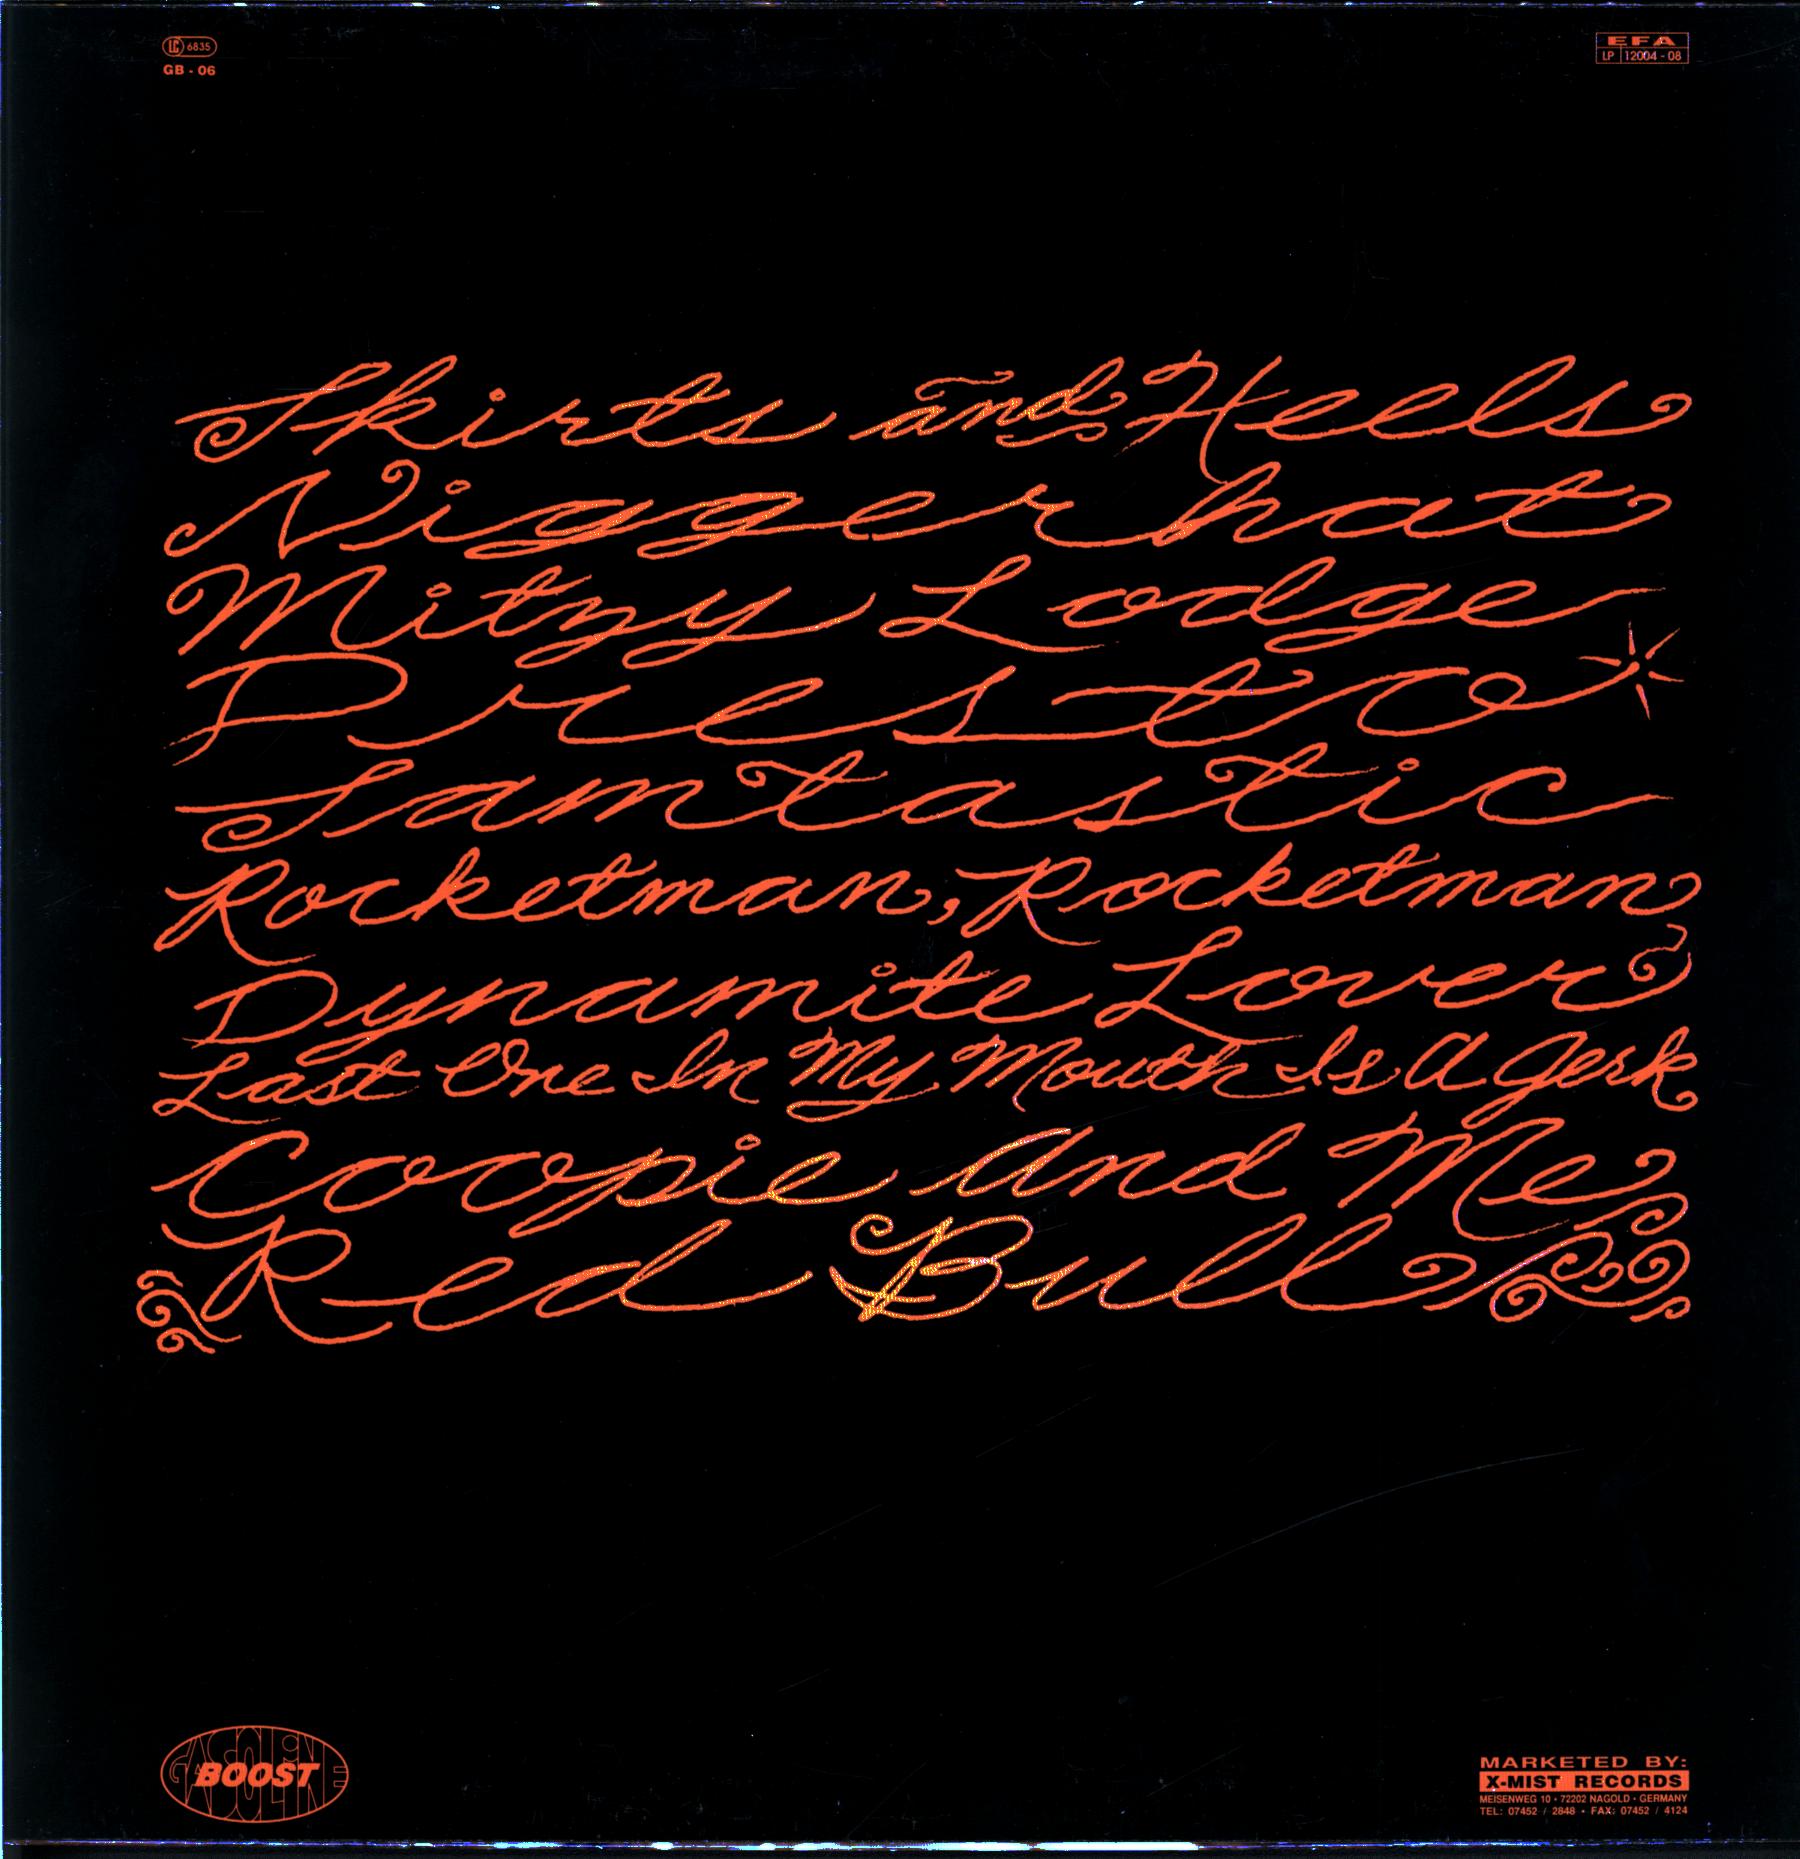 LC 6835
GB - 06
EFA
LP 12004 - 08
Skirts and Heels
Niggerhat
Mitzy Lodge
Presto
Samtastic
Rocketman, Rocketman
Dynamite Lover
Last One In My Mouth Is A Jerk
Coopie And Me
Red Bull
GASOLINE
BOOST
MARKETED BY:
X-MIST RECORDS
MEISENWEG 10 • 72202 NAGOLD • GERMANY
TEL: 07452 / 2848 • FAX: 07452 / 4124